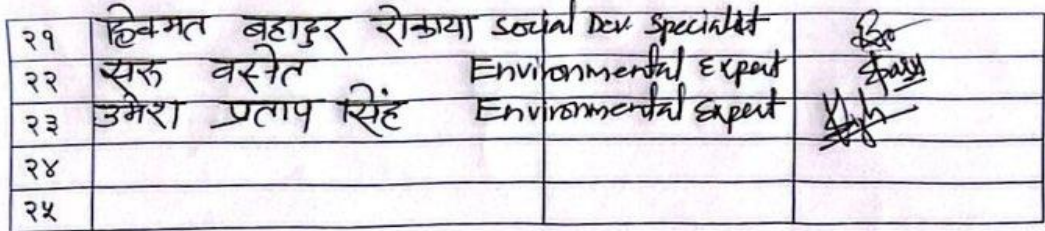 २१ हिक्मत बहादुर रोकाया Social Dev. Specialist
२२ सरु बस्नेत Environmental Expert
२३ उमेश प्रताप सिंह Environmental Expert
२४
२५